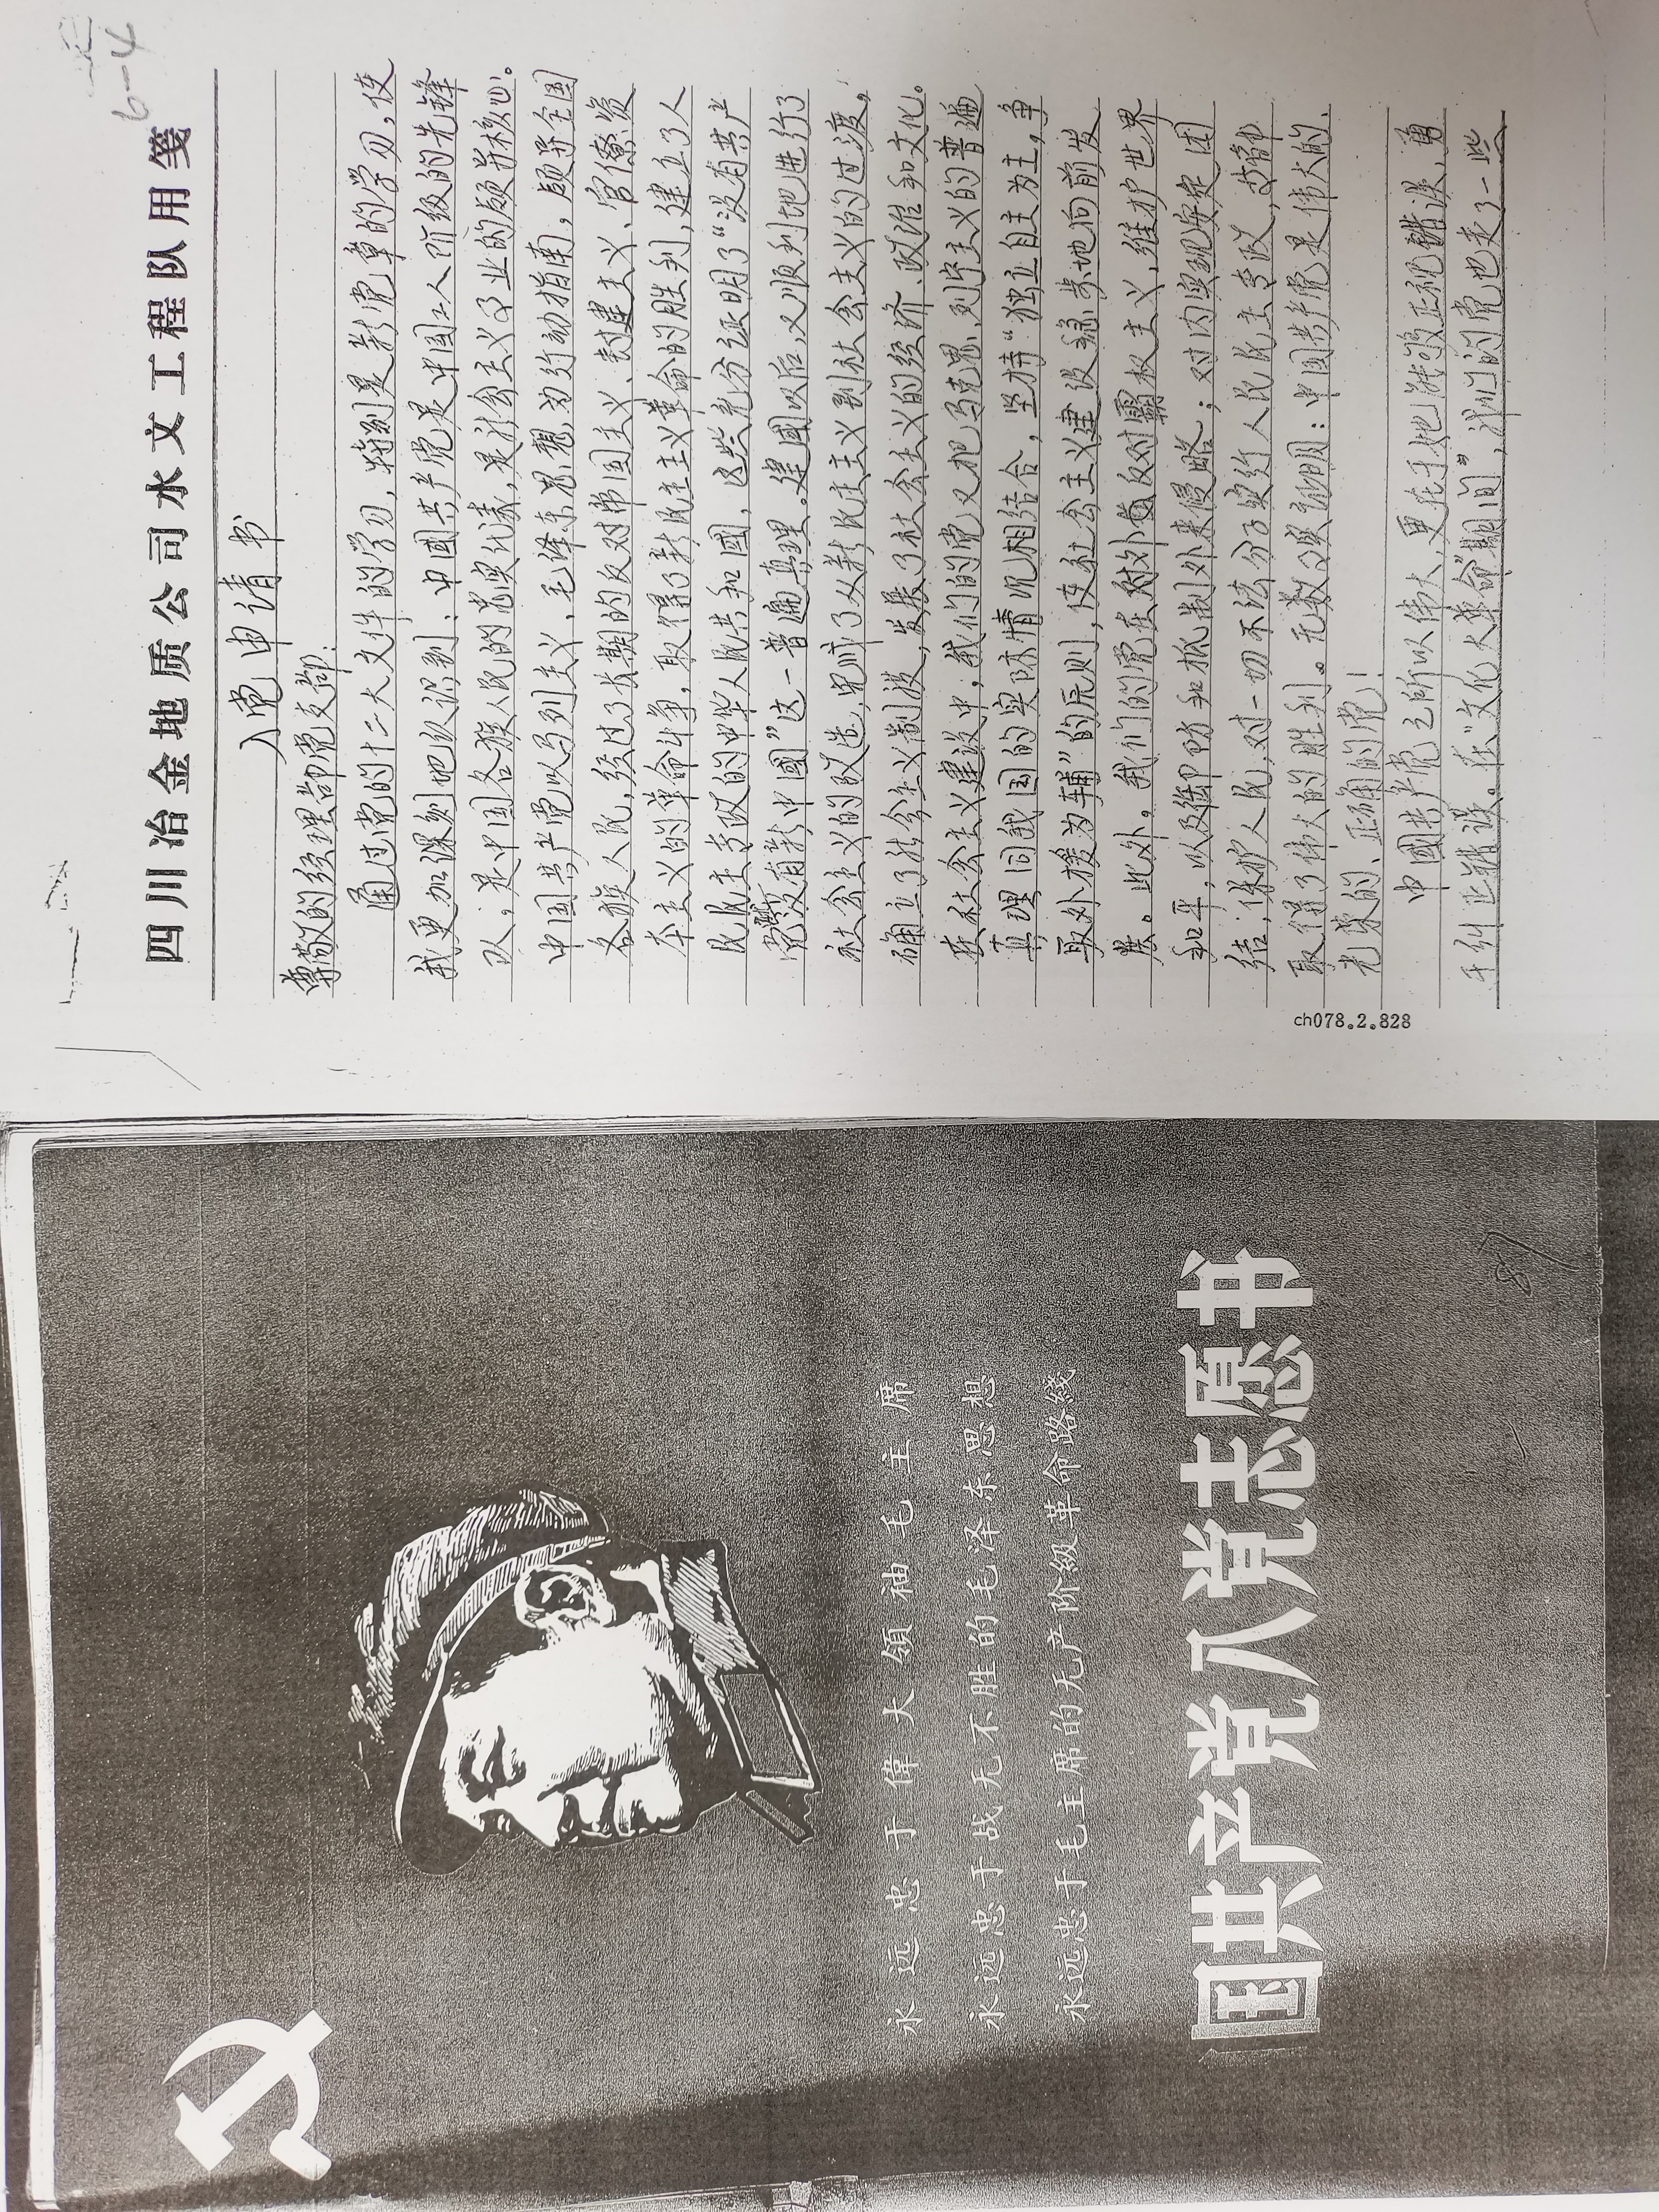 永远忠于偉大領袖毛主席
永远忠于战无不胜的毛泽东思想
永远忠于毛主席的无产阶級革命路綫
国共产党入党志愿书
87
6-4
四川冶金地质公司水文工程队用笺
入党申请书
尊敬的经理部党支部：
通过党的十二大文件的学习，特别是新党章的学习，使
我更加深刻地认识到：中國共产党是中国工人阶级的先锋
队；是中国各族人民的忠实代表，是社会主义事业的领导核心。
中国共产党以马列主义、毛泽东思想为行动指南，领导全国
各族人民，经过了长期的反对帝国主义、封建主义、官僚资
本主义的革命斗争，取得了新民主主义革命的胜利，建立了人
民民主专政的中华人民共和國，这些充分证明了“没有共产
党就没有新中國”这一普遍真理。建國以后，又顺利地进行了
社会主义的改造，完成了从新民主主义到社会主义的过渡，
确立了社会主义制度，发展了社会主义的经济、政治和文化。
在社会主义建设中，我们的党又把马克思、列宁主义的普遍
真理同我国的实际情况相结合，坚持“独立自主为主，争
取外援为辅”的原则，使社会主义建设稳步地向前发
展。此外，我们的党在对外反对霸权主义，维护世界
和平，以及御防和抵制外来侵略；对内实现安定团
结；保护人民，对一切不法分子实行人民民主专政，均都
取得了伟大的胜利。无数事实证明：中国共产党是伟大的、
光荣的、正确的党！
中國共产党之所以伟大，更在于她能够正视错误，勇
于纠正错误。在“文化大革命”期间”，我们的党也走了一些
ch078.2.828